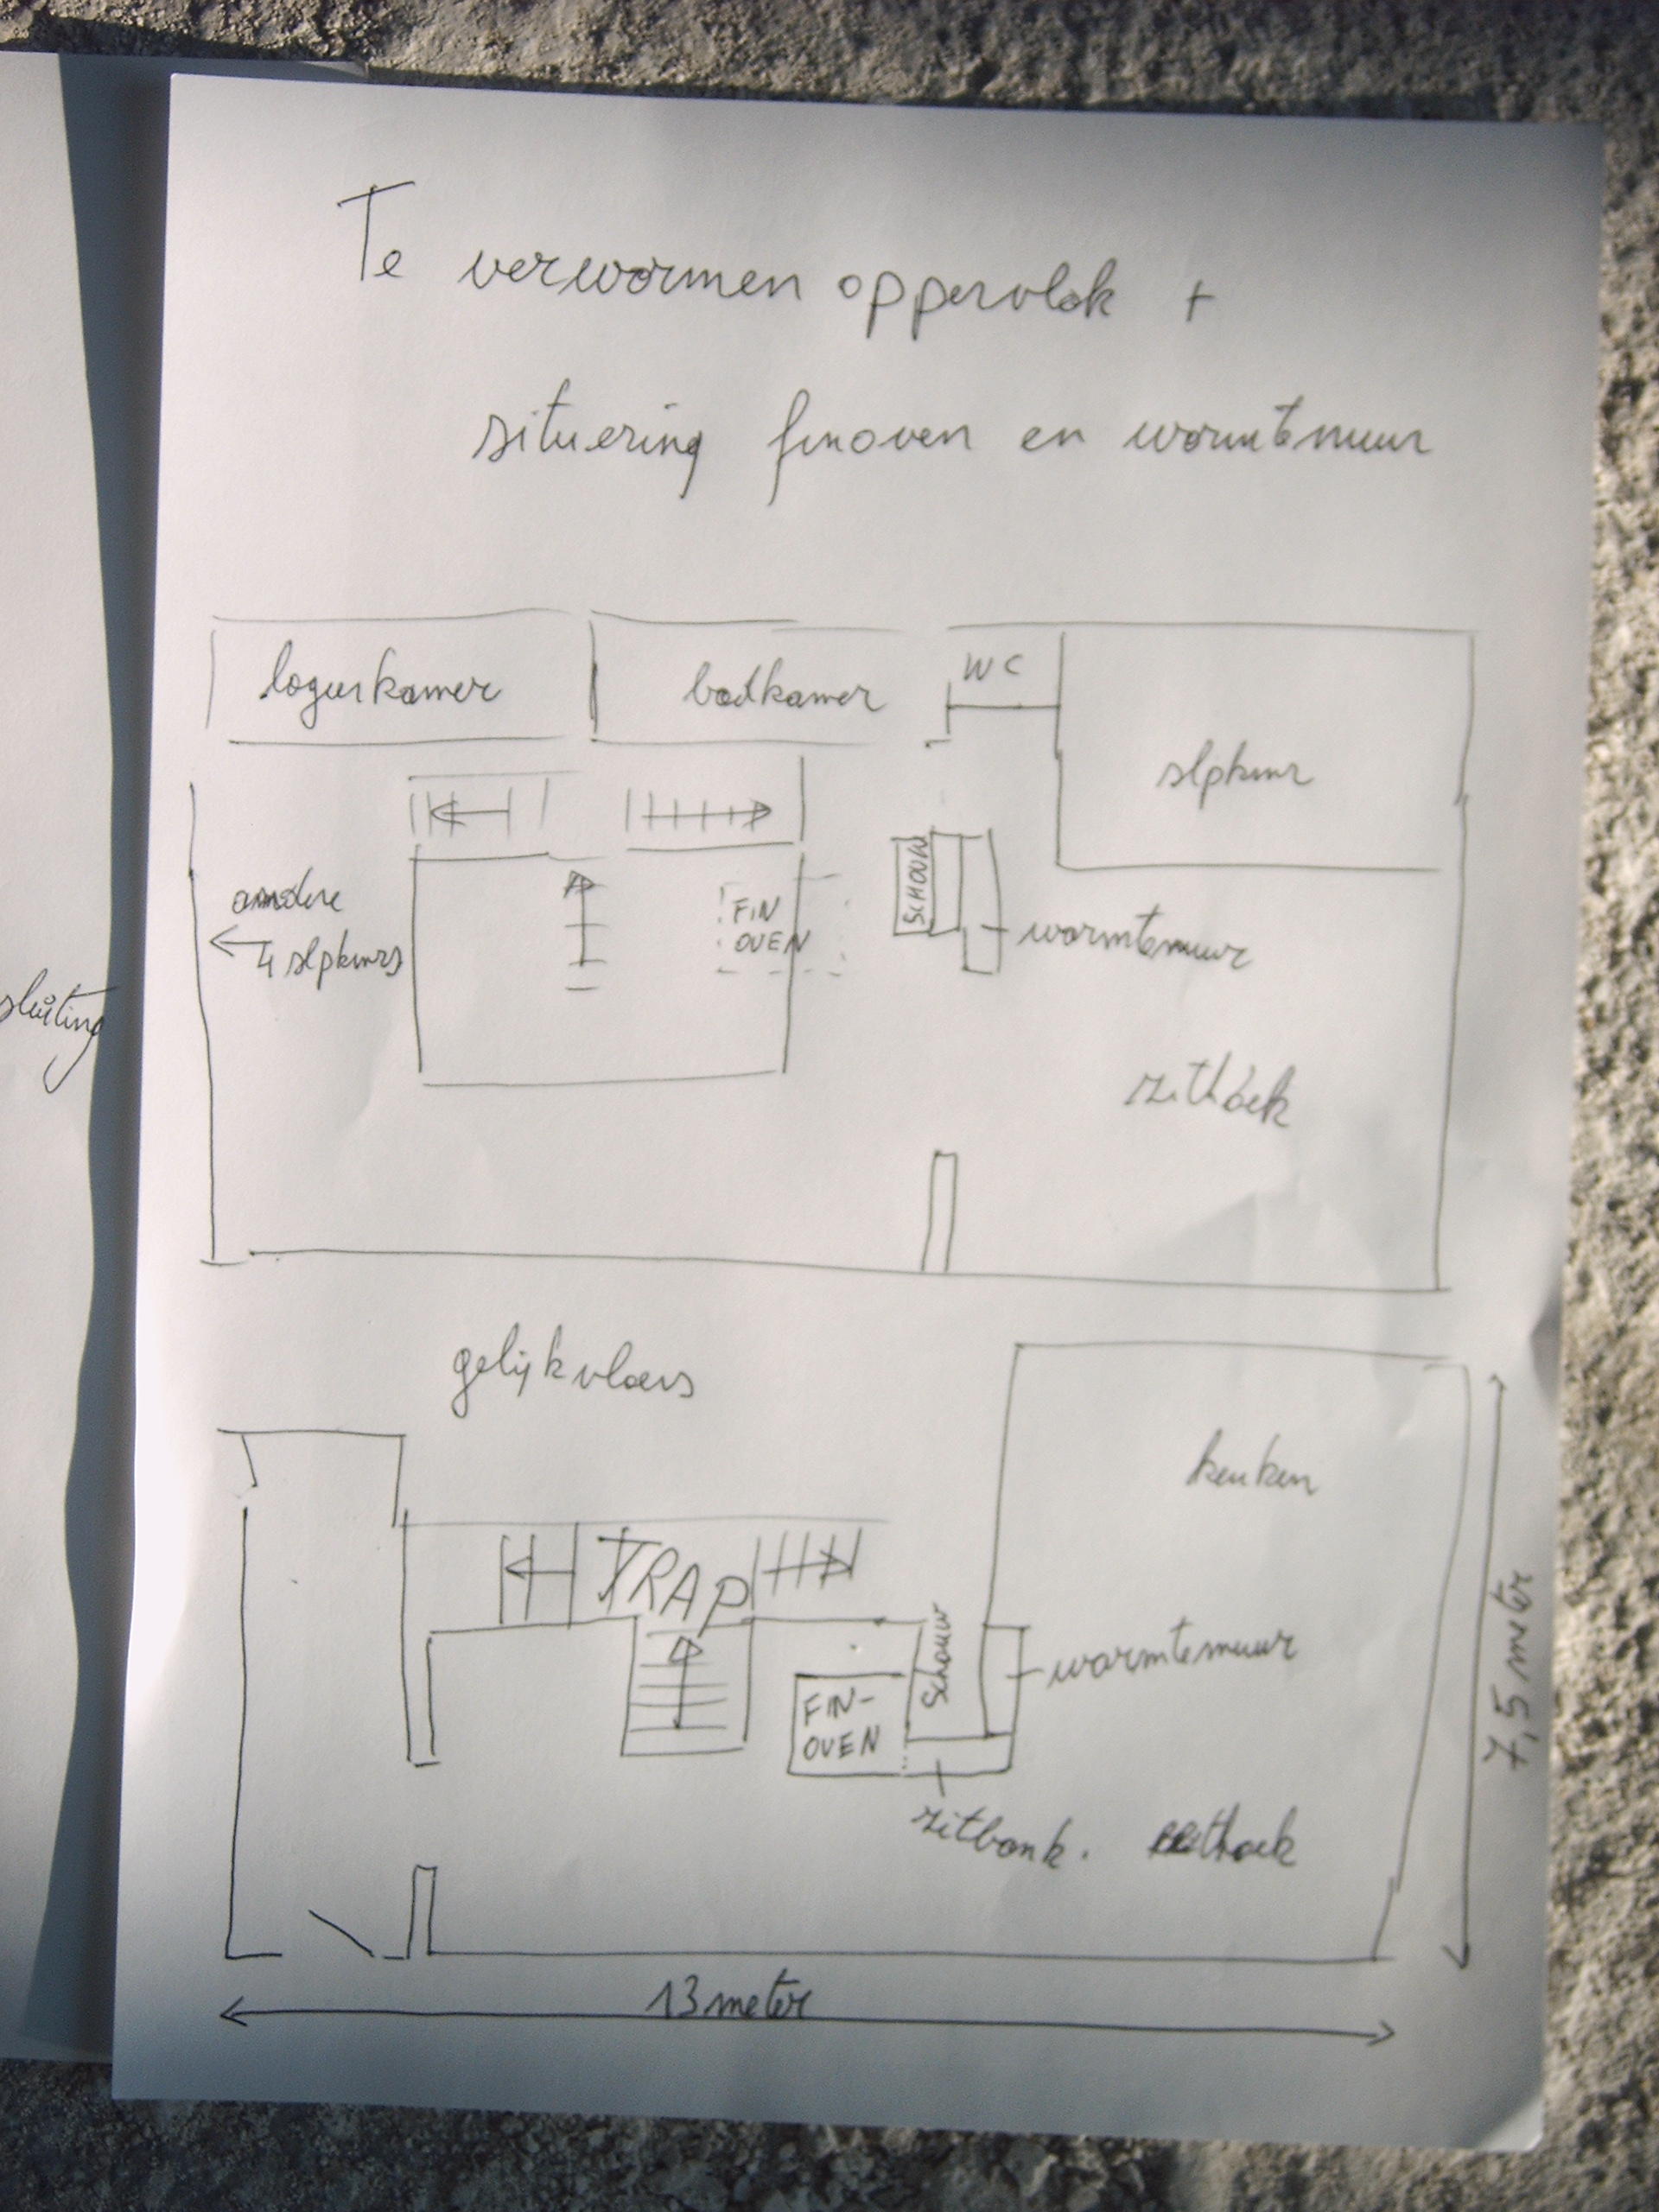 Te verwarmen oppervlak +
situering finoven en warmtemuur
logeerkamer
badkamer
WC
slpkmr
andere
4 slpkmrs
FIN
OVEN
SCHOUW
warmtemuur
zithoek
sluiting
gelijkvloers
keuken
TRAP
Schouw
warmtemuur
FIN-
OVEN
zitbank.
eethoek
7,5 meter
13 meter